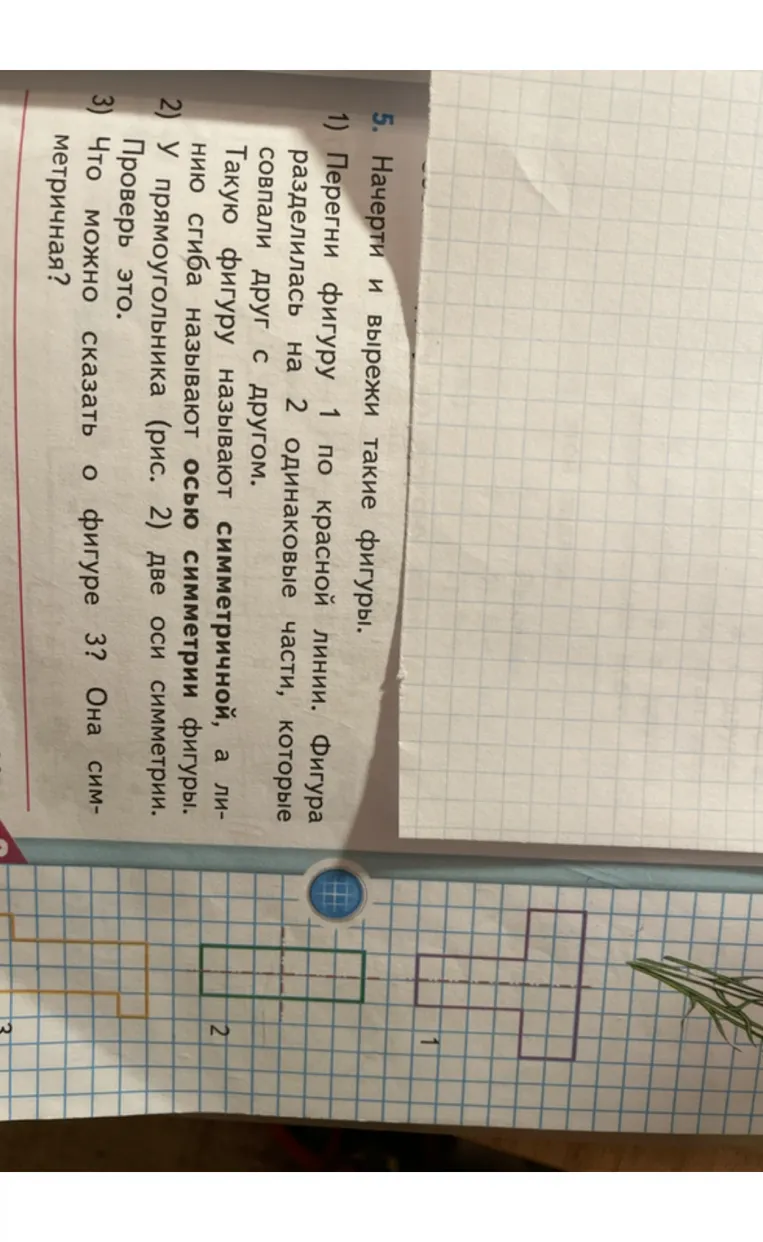 5. Начерти и вырежи такие фигуры.
1) Перегни фигуру 1 по красной линии. Фигура
разделилась на 2 одинаковые части, которые
совпали друг с другом.
Такую фигуру называют симметричной, а ли-
нию сгиба называют осью симметрии фигуры.
2) У прямоугольника (рис. 2) две оси симметрии.
Проверь это.
3) Что можно сказать о фигуре 3? Она сим-
метричная?
1
2
3